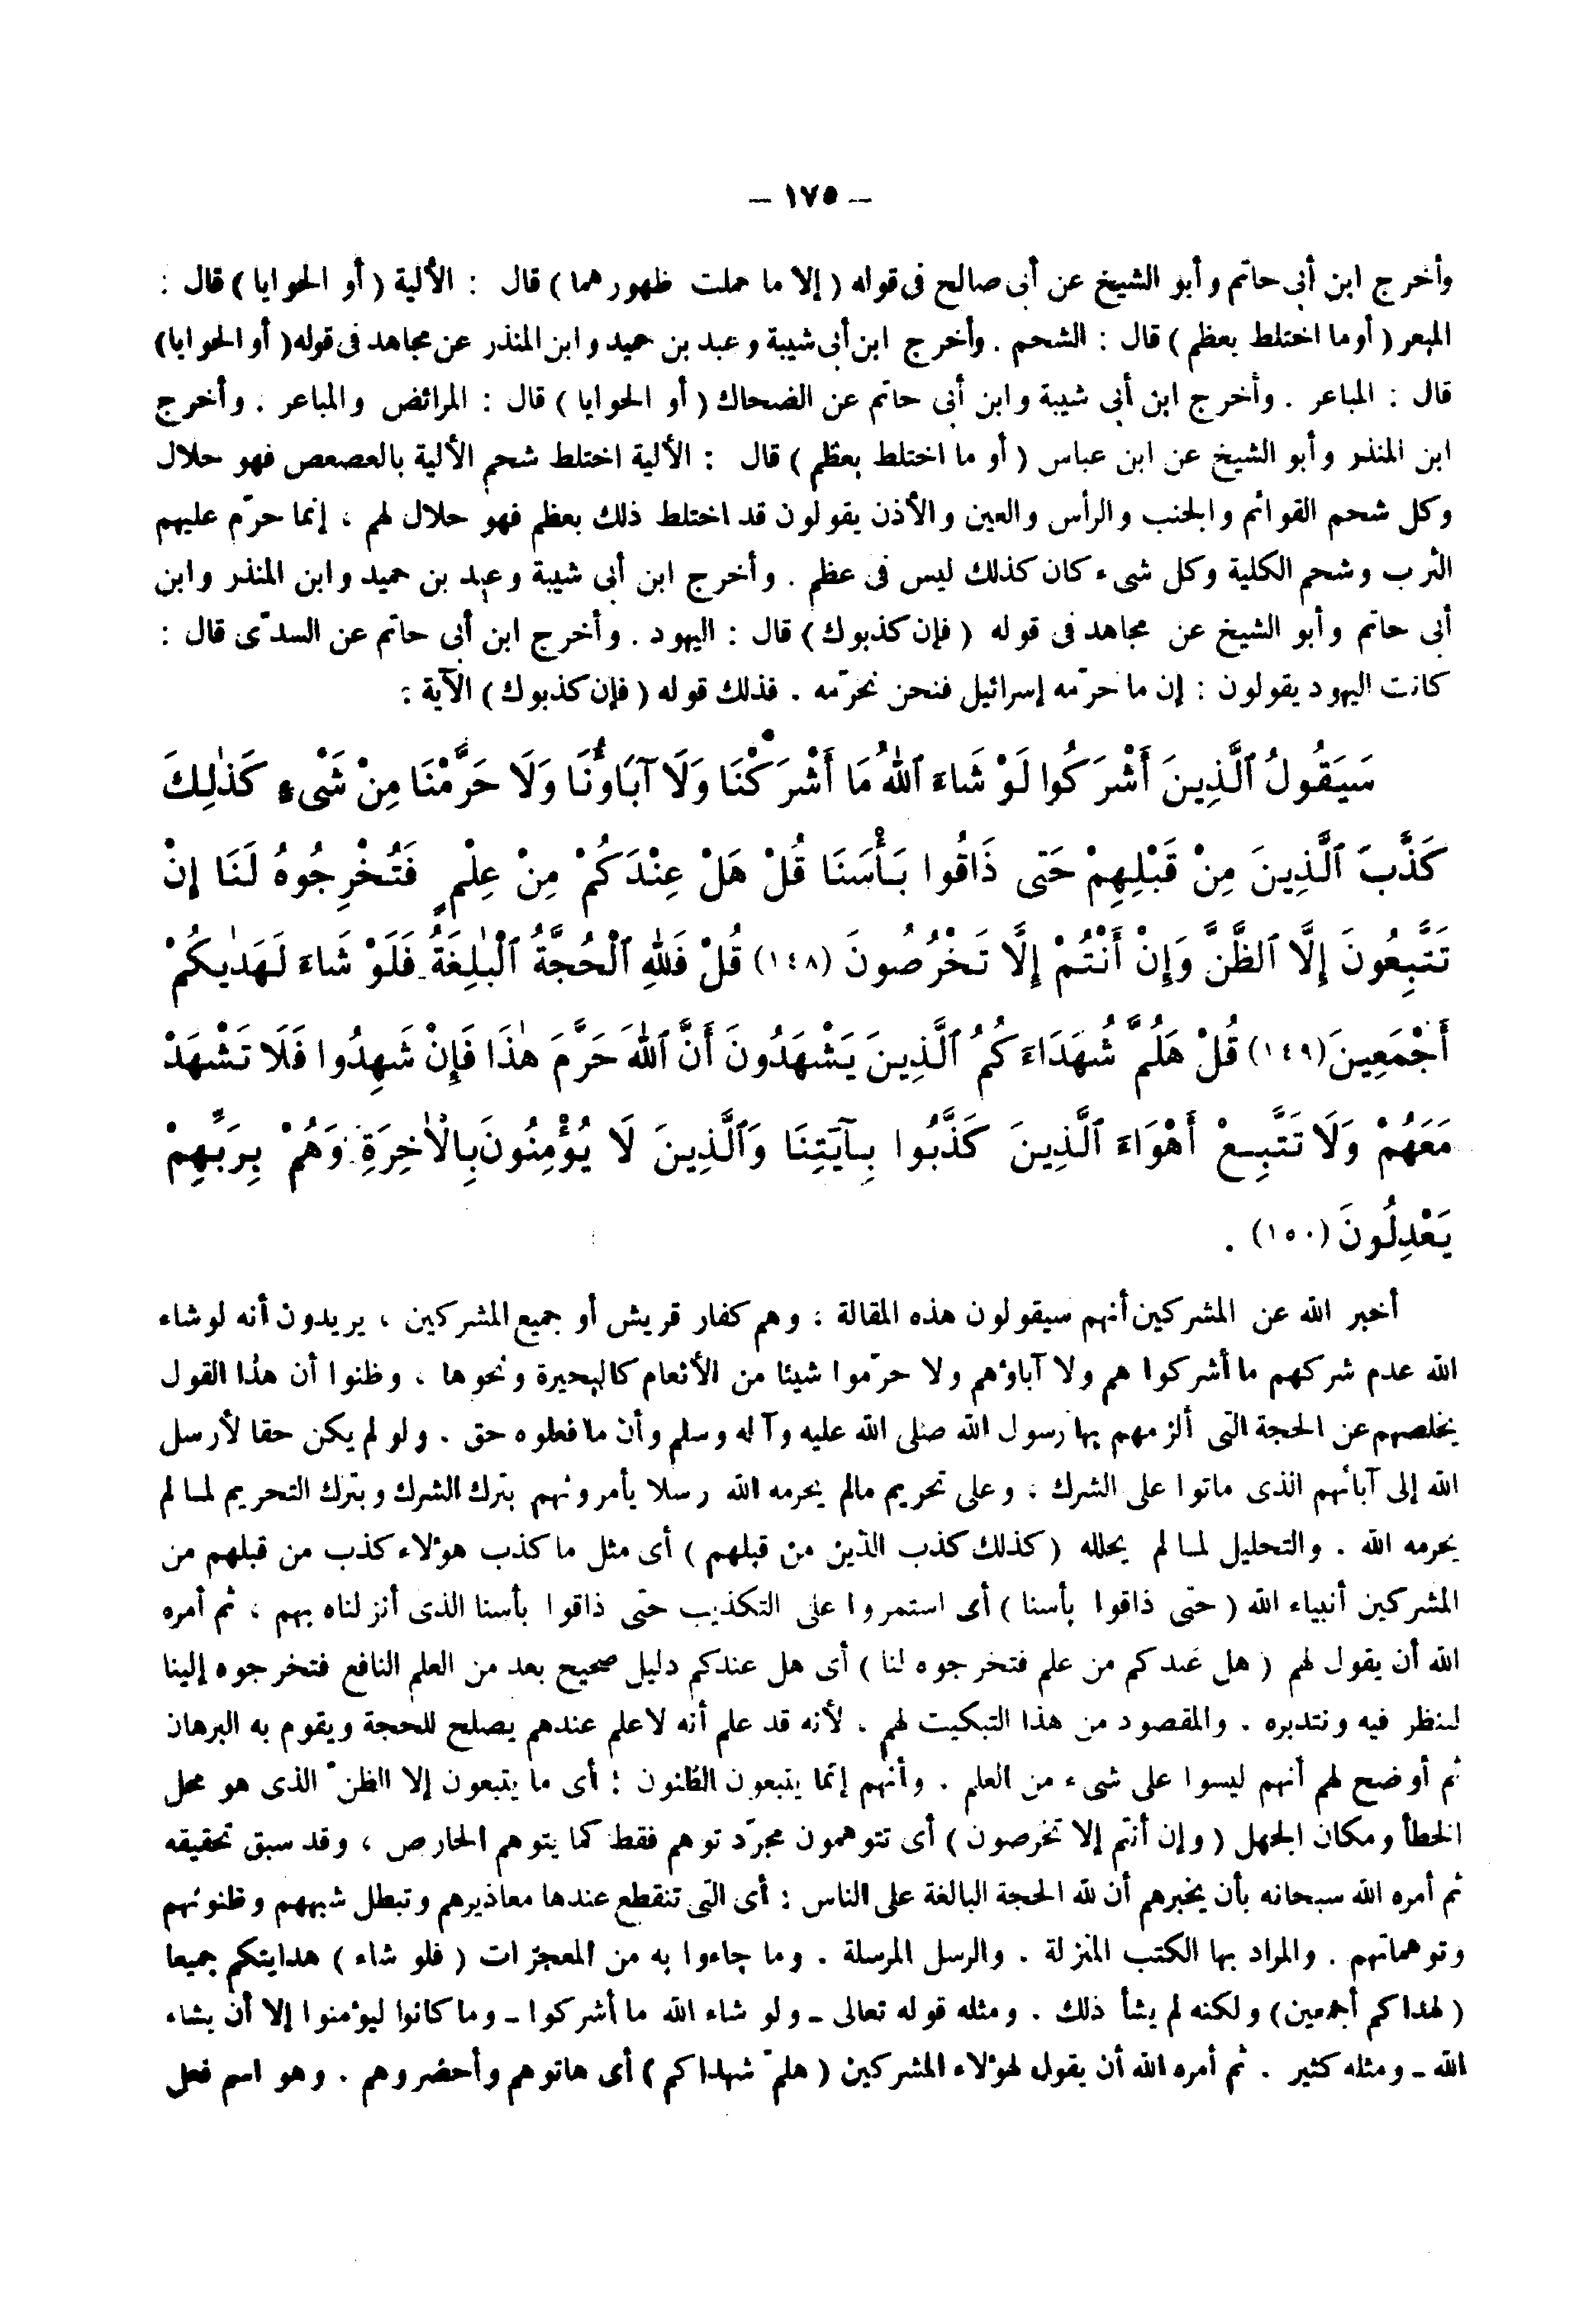 – ١٧٥ –
وأخرج ابن أبى حاتم وأبو الشيخ عن أبى صالح فى قوله ( إلا ما حملت ظهورهما ) قال : الألية ( أو الحوايا ) قال :
المبعر ( أو ما اختلط بعظم ) قال : الشحم . وأخرج ابن أبى شيبة وعبد بن حميد وابن المنذر عن مجاهد فى قوله ( أو الحوايا )
قال : المباعر . وأخرج ابن أبي شيبة وابن أبى حاتم عن الضحاك ( أو الحوايا ) قال : المرائض والمباعر . وأخرج
ابن المنذر وأبو الشيخ عن ابن عباس ( أو ما اختلط بعظم ) قال : الألية اختلط شحم الألية بالعصعص فهو حلال
وكل شحم القوائم والجنب والرأس والعين والأذن يقولون قد اختلط ذلك بعظم فهو حلال لهم ، إنما حرّم عليهم
الثرب وشحم الكلية وكل شىء كان كذلك ليس فى عظم . وأخرج ابن أبى شيبة وعبد بن حميد وابن المنذر وابن
أبى حاتم وأبو الشيخ عن مجاهد فى قوله ( فإن كذبوك ) قال : اليهود . وأخرج ابن أبى حاتم عن السدّى قال :
كانت اليهود يقولون : إن ما حرّمه إسرائيل فنحن نحرّمه . فذلك قوله ( فإن كذبوك ) الآية :
سَيَقُولُ ٱلَّذِينَ أَشْرَكُوا لَوْ شَاءَ ٱللهُ مَا أَشْرَكْنَا وَلَا آبَاؤُنَا وَلَا حَرَّمْنَا مِنْ شَىْءٍ كَذٰلِكَ
كَذَّبَ ٱلَّذِينَ مِنْ قَبْلِهِمْ حَتَى ذَاقُوا بَأْسَنَا قُلْ هَلْ عِنْدَكُمْ مِنْ عِلْمٍ فَتُخْرِجُوهُ لَنَا إِنْ
تَتَّبِعُونَ إِلَّا ٱلظَّنَّ وَإِنْ أَنْتُمْ إِلَّا تَخْرُصُونَ (١٤٨) قُلْ فَلِلّٰهِ ٱلْحُجَّةُ ٱلْبٰلِغَةُ فَلَوْ شَاءَ لَهَدٰيكُمْ
أَجْمَعِينَ (١٤٩) قُلْ هَلُمَّ شُهَدَاءَكُمُ ٱلَّذِينَ يَشْهَدُونَ أَنَّ ٱللهَ حَرَّمَ هٰذَا فَإِنْ شَهِدُوا فَلَا تَشْهَدْ
مَعَهُمْ وَلَا تَتَّبِعْ أَهْوَاءَ ٱلَّذِينَ كَذَّبُوا بِآيَتِنَا وَٱلَّذِينَ لَا يُؤْمِنُونَ بِالْأٰخِرَةِ وَهُمْ بِرَبِّهِمْ
يَعْدِلُونَ (١٥٠) .
أخبر الله عن المشركين أنهم سيقولون هذه المقالة ؛ وهم كفار قريش أو جميع المشركين ، يريدون أنه لو شاء
الله عدم شركهم ما أشركوا هم ولا آباؤهم ولا حرّموا شيئا من الأنعام كالبحيرة ونحوها ، وظنوا أن هذا القول
يخلصهم عن الحجة التى ألزمهم بها رسول الله صلى الله عليه وآله وسلم وأن ما فعلوه حق . ولو لم يكن حقا لأرسل
الله إلى آبائهم الذى ماتوا على الشرك ، وعلى تحريم مالم يحرمه الله رسلا يأمرونهم بترك الشرك وبترك التحريم لما لم
يحرمه الله . والتحليل لما لم يحلله ( كذلك كذب الذين من قبلهم ) أى مثل ما كذب هؤلاء كذب من قبلهم من
المشركين أنبياء الله ( حتى ذاقوا بأسنا ) أى استمروا على التكذيب حتى ذاقوا بأسنا الذى أنزلناه بهم ، ثم أمره
الله أن يقول لهم ( هل عندكم من علم فتخرجوه لنا ) أى هل عندكم دليل صحيح بعد من العلم النافع فتخرجوه إلينا
لننظر فيه ونتدبره . والمقصود من هذا التبكيت لهم . لأنه قد علم أنه لا علم عندهم يصلح للحجة ويقوم به البرهان
ثم أوضح لهم أنهم ليسوا على شىء من العلم . وأنهم إنما يتبعون الظنون : أى ما يتبعون إلا الظنّ الذى هو محل
الخطأ ومكان الجهل ( وإن أنتم إلا تخرصون ) أى تتوهمون مجرّد توهم فقط كما يتوهم الخارص ، وقد سبق تحقيقه
ثم أمره الله سبحانه بأن يخبرهم أن لله الحجة البالغة على الناس : أى التى تنقطع عندها معاذيرهم وتبطل شبههم وظنونهم
وتوهماتهم . والمراد بها الكتب المنزلة . والرسل المرسلة . وما جاءوا به من المعجزات ( فلو شاء ) هدايتكم جميعا
( لهداكم أجمعين ) ولكنه لم يشأ ذلك . ومثله قوله تعالى - ولو شاء الله ما أشركوا - وما كانوا ليؤمنوا إلا أن يشاء
الله - ومثله كثير . ثم أمره الله أن يقول لهؤلاء المشركين ( هلمّ شهداكم ) أى هاتوهم وأحضروهم . وهو اسم فعل